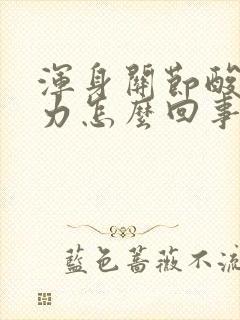 渾身關節酸
力怎麼回事
藍色薔薇不流